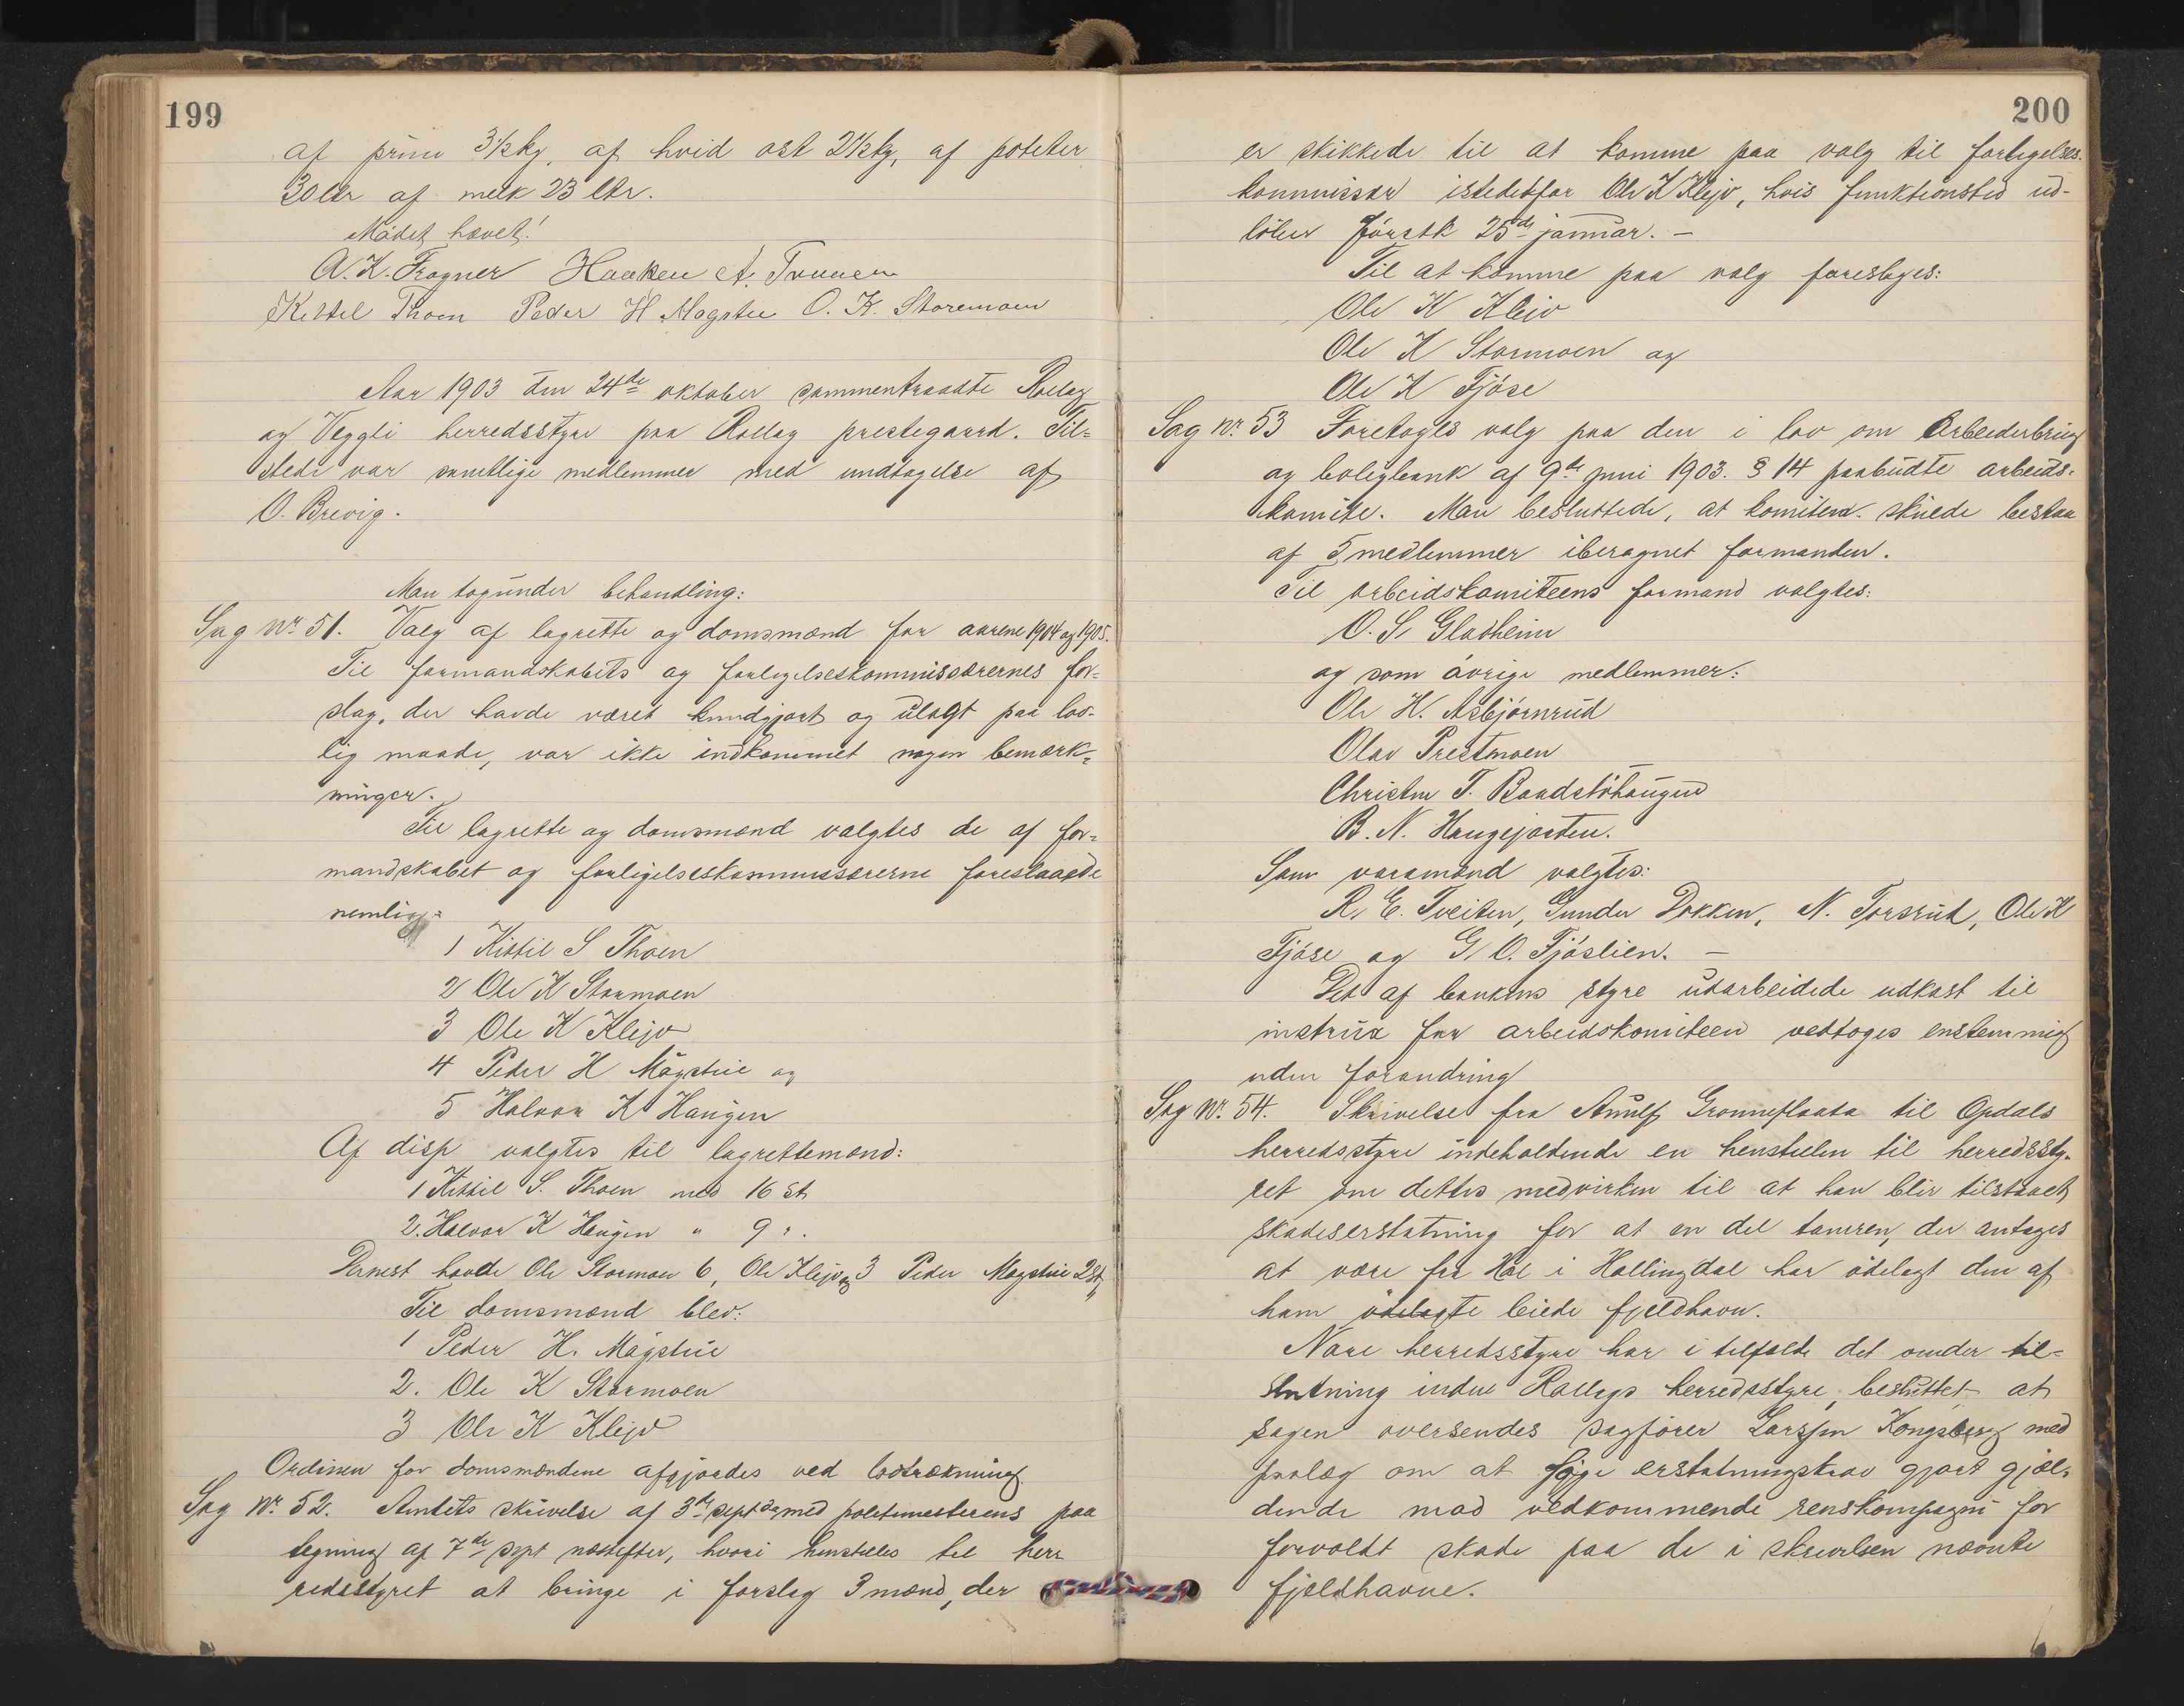 199
af prim 3½ kg, af hvid ost 2½ kg, af poteter
30 ltr af melk 23 ltr.
Mødet hævet!
A. K. Frogner Haaken A. Traaen
Kittel Thoen Peder H Magstu O. K. Storemoen
Aar 1903 den 24de oktober sammentraadte Rollag
og Veggli herredsstyre paa Rollag prestegaard. Til-
stede var samtlige medlemmer med undtagelse af
O. Brevig.
Man tog under behandling:
Sag Nr. 51. Valg af lagrette og domsmænd for aarene 1904 og 1905.
Til formandskabets og forligelseskommissærernes for-
slag, der havde været kundgjort og ulagt paa lov-
lig maade, var ikke indkommet nogen bemærk-
ninger.
Til lagrette og domsmænd valgtes de af for-
mandskabet og forligelseskommissærerne foreslaaede
nemlig:
1 Kittil S Thoen
2 Ole K Stormoen
3 Ole K Klejv
4 Peder H Mågstue og
5 Halvor K Haugen
Af disse valgtes til lagrettemænd:
1 Kittil S. Thoen med 16 st
2. Halvor K Haugen " 9 ".
Dernest havde Ole Stormoen 6, Ole Klejv 3 og Peder Magstue 2 st,
Til domsmænd blev:
1 Peder H. Mågstue
2. Ole K Stormoen
3 Ole K Klejv
Ordnen for domsmændene afgjordes ved lodtrækning.
Sag Nr. 52. Amtets skrivelse af 3de sept da med politimesterens paa
tegning af 7de sept næstefter, hvori henstilles til her-
redsstyret at bringe i forslag 3 mænd, der
200
er skikkede til at komme paa valg til forligelses-
kommissær istedetfor Ole K Klejv, hvis funktionstid ud-
løber førstk 25de januar. –
Til at komme paa valg foreslages:
Ole K Klejv
Ole K Stormoen og
Ole K Fjøse
Sag Nr. 53 Foretoges valg paa den i lov om Arbeiderbrug
og boligbank af 9de juni 1903. § 14 paabudte arbeids-
komite. Man besluttede, at komiteen skulde bestaa
af 5 medlemmer iberegnet formanden.
Til arbeidskomiteens formand valgtes:
O. S. Gladheim
og som øvrige medlemmer:
Ole H. Asbjørnrud
Olav Prestmoen
Christen T. Baadstøhaugen
B. N. Haugejorden.
Som varamænd valgtes:
R. E. Tveiten, Gunder Dokken, N. Torsrud, Ole K
Fjøse og G. O. Fjøslien. –
Det af bankens styre udarbeidede udkast til
instrux for arbeidskomiteen vedtoges enstemmig
uden forandring
Sag Nr. 54. Skrivelse fra Anulf Gronneflaata til Opdals
herredsstyre indeholdende en henstillen til herredssty-
ret om dettes medvirken til at han blir tilstaaet
skadeserstatning for at en del tamren, der antages
at være fra Hol i Hallingdal har ødelagt den af
ham ødelagte leiede fjeldhavn.
Nore herredsstyre har i tilfælde det under til-
slutning inden Rollags herredsstyre, besluttet at
sagen oversendes sagfører Larssen Kongsberg med
paalæg om at søge erstatningskrav gjort gjæl-
dende mod vedkommende renskompagni for
forvoldt skade paa de i skrivelsen nævnte
fjeldhavne.